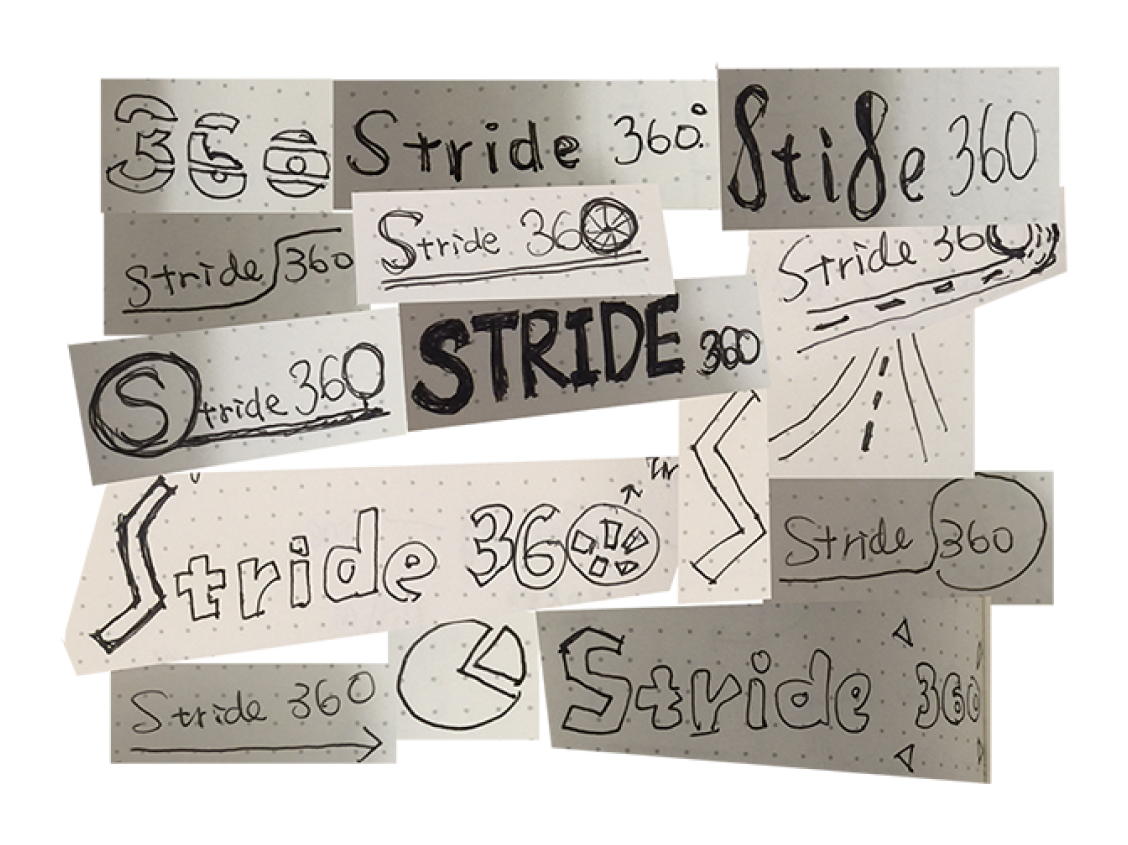 360
Stride 360°
Stide 360
Stride 360
Stride 360
Stride 360
Stride 360
STRIDE 360
Stride 360
Stride 360
Stride 360
Stride 360